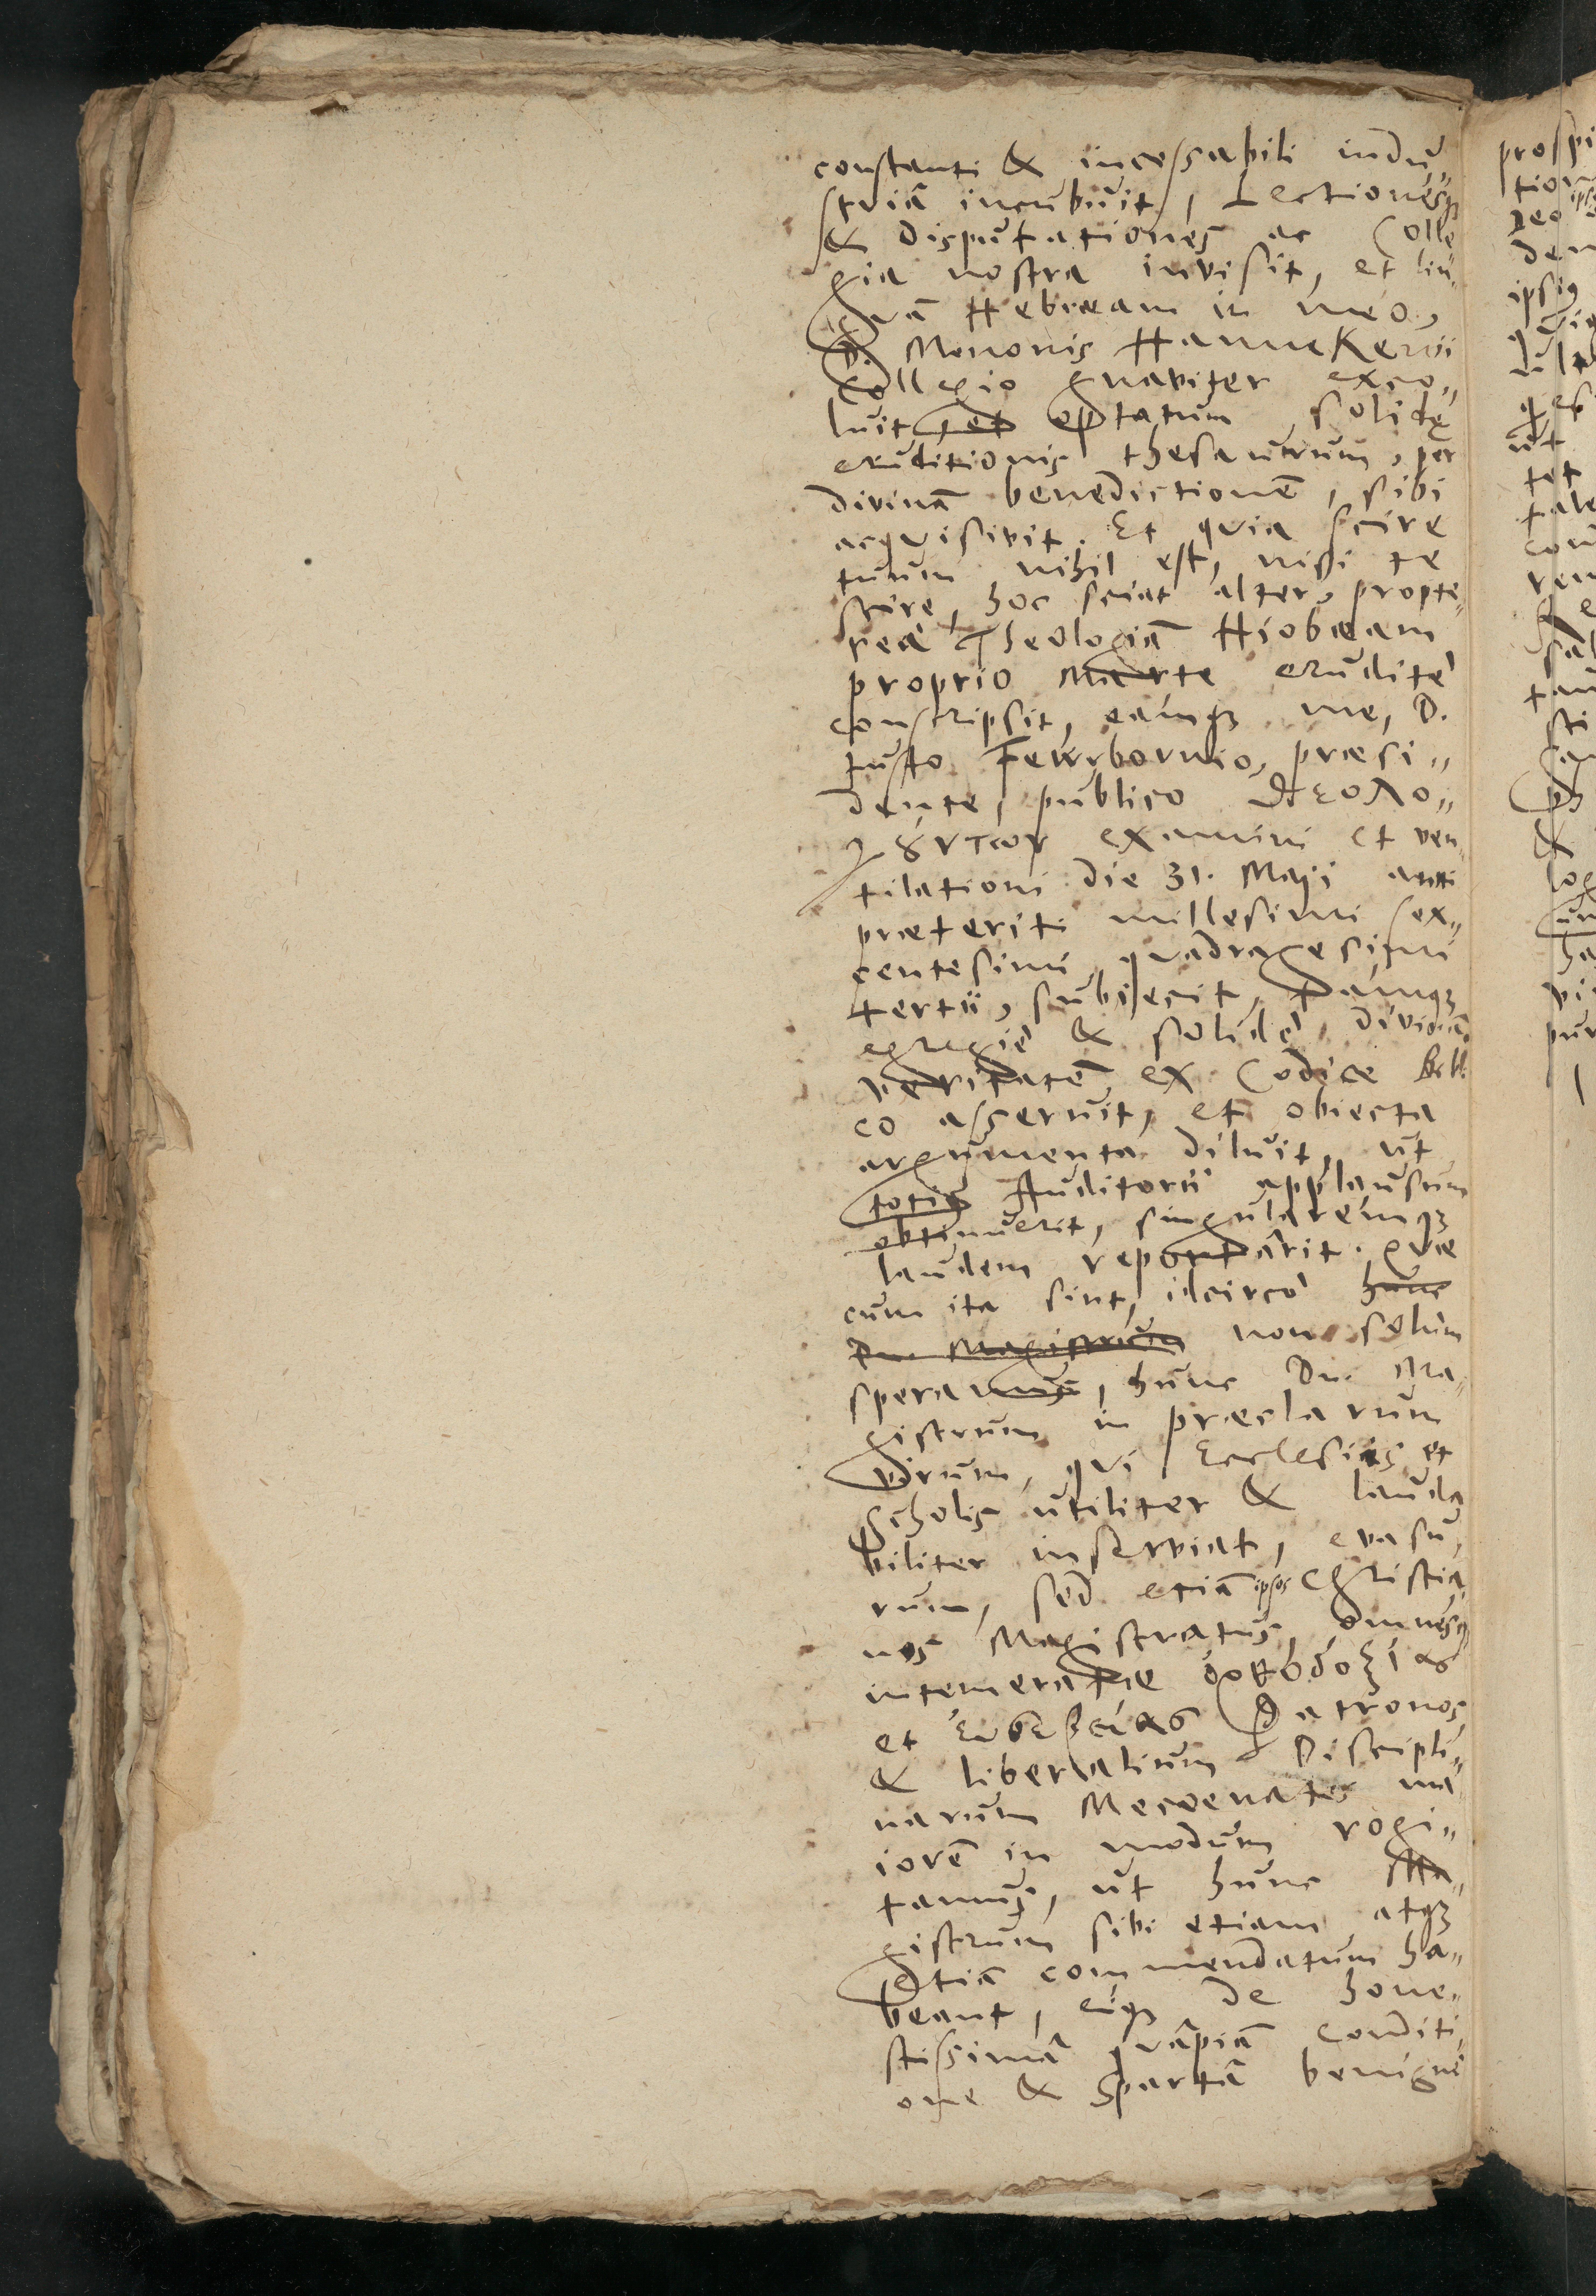 constanti & incessabili indu
striâ incubuit, Lectionesq3
& disputationes ac Colle
gia nostra invisit, et lin„
gvâ Hebræam in meo,
D. Menonis Hannekenii
Collegio gnaviter exco„
luit, et optatum solidę
eruditionis thesaurum, per
divinâ benedictionē, sibi
acqvisivit. Et qvia scire
tuum nihil est, nisi te
scire, hoc sciat alter, propte„
reà Theologiâ Hiobæam
proprio marte eruditè
conscripsit, eamq3 me, D.
Justo Fewrbornio, præsi„
dente, publico θεολο„
γȣντων examini et ven„
tilationi die 31. Maji anni
præteriti millesimi sex„
centesimi qvadragesimi
tertii, subjecit, tamq3
egregiè & solidè divinâ
veritatē ex Codice Bibl.
co asseruit, et obiecta
argumenta diluit, ut
totiꝰ Auditorii applausum
obtinuerit, singularemq3
laudem reportârit. Qvæ
cum ita sint, idcircò hunc
Dn. Magistrum non solùm
speramus, hunc Dn. Ma„
gistrum in præclarum
virum, qvi Ecclesiis et
Scholis utiliter & lauda
biliter inserviat, evasu„
rum, sed etiâ ipsos Christia„
nos Magistratus, omnesq3
intemeratæ ὀρθοδοξίας
et εὐσεβείας Patronos
& liberalium Discipli„
narum Mecœnates ma„
iorē in modum rogi„
tamus, ut hunc Ma„
gistrum sibi etiam atq3
etiâ commendatum ha„
beant, eiq3 de hone„
stissimâ qvâpiâ conditi„
one & Spartâ benignè
prospi